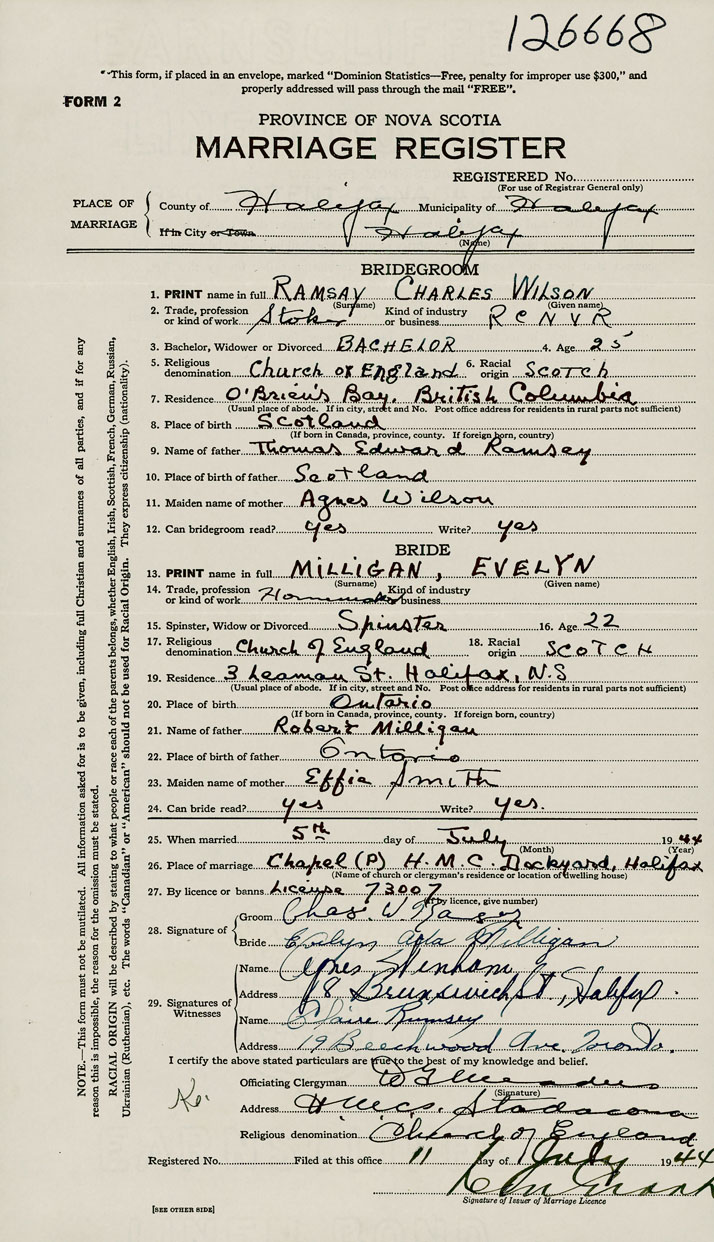 126668
"This form, if placed in an envelope, marked "Dominion Statistics—Free, penalty for improper use $300," and
properly addressed will pass through the mail "FREE".
FORM 2
PROVINCE OF NOVA SCOTIA
MARRIAGE REGISTER
REGISTERED No.
(For use of Registrar General only)
PLACE OF MARRIAGE
County of Halifax Municipality of Halifax
If in City or Town Halifax
(Name)
BRIDEGROOM
1. PRINT name in full RAMSAY CHARLES WILSON
(Surname) (Given name)
2. Trade, profession or kind of work Stoker Kind of industry or business R C N V R
3. Bachelor, Widower or Divorced BACHELOR 4. Age 25
5. Religious denomination Church of England 6. Racial origin SCOTCH
7. Residence O'Brien's Bay, British Columbia
(Usual place of abode. If in city, street and No. Post office address for residents in rural parts not sufficient)
8. Place of birth Scotland
(If born in Canada, province, county. If foreign born, country)
9. Name of father Thomas Edward Ramsey
10. Place of birth of father Scotland
11. Maiden name of mother Agnes Wilson
12. Can bridegroom read? yes Write? yes
BRIDE
13. PRINT name in full MILLIGAN, EVELYN
(Surname) (Given name)
14. Trade, profession or kind of work Homemaker Kind of industry business
15. Spinster, Widow or Divorced Spinster 16. Age 22
17. Religious denomination Church of England 18. Racial origin SCOTCH
19. Residence 3 Leaman St. Halifax, N.S
(Usual place of abode. If in city, street and No. Post office address for residents in rural parts not sufficient)
20. Place of birth Ontario
(If born in Canada, province, county. If foreign born, country)
21. Name of father Robert Milligan
22. Place of birth of father Ontario
23. Maiden name of mother Effie Smith
24. Can bride read? yes Write? yes.
25. When married 5th day of July 1944
(Month) (Year)
26. Place of marriage Chapel (P) H.M.C. Dockyard, Halifax
(Name of church or clergyman's residence or location of dwelling house)
27. By licence or banns License 73007
(If by licence, give number)
28. Signature of
Groom Chas. W
Bride Evelyn Ada Milligan
29. Signatures of Witnesses
Name
Address 18 Brunswick St, Halifax.
Name Claire Rumsey
Address 19 Beechwood Ave. Toronto.
I certify the above stated particulars are true to the best of my knowledge and belief.
Officiating Clergyman
(Signature)
Address H.M.C.S. Stadacona
Religious denomination Church of England
Registered No. Filed at this office 11 day of July 1944
Signature of Issuer of Marriage Licence
[SEE OTHER SIDE]
NOTE.—This form must not be mutilated. All information asked for is to be given, including full Christian and surnames of all parties, and if for any
reason this is impossible, the reason for the omission must be stated.
RACIAL ORIGIN will be described by stating to what people or race each of the parents belongs, whether English, Irish, Scottish, French, German, Russian,
Ukrainian (Ruthenian), etc. The words "Canadian" or "American" should not be used for Racial Origin. They express citizenship (nationality).